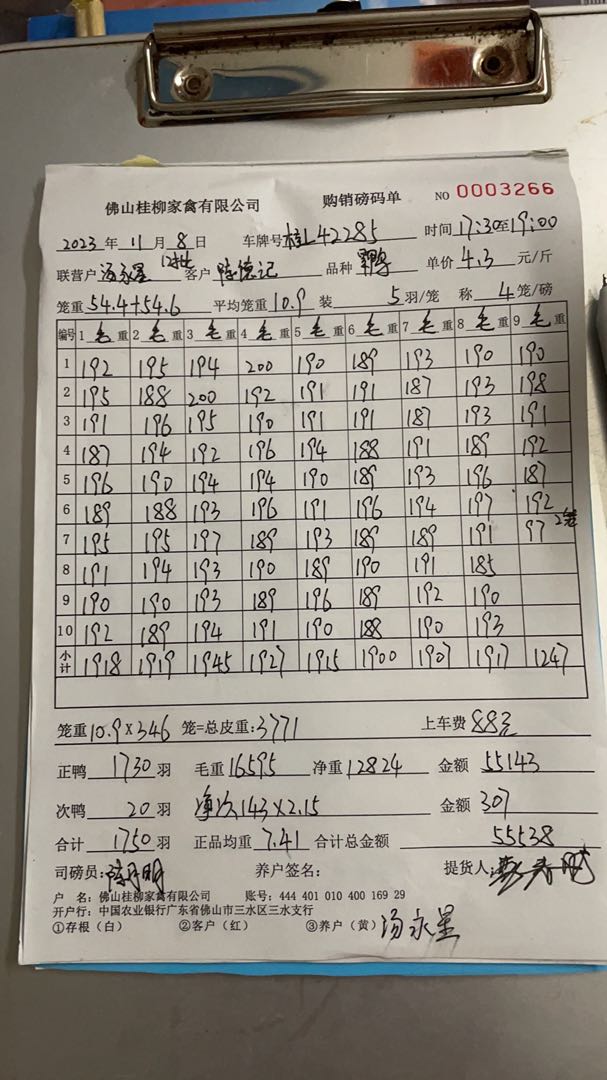 佛山桂柳家禽有限公司 购销磅码单 NO 0003266
2023 年 11 月 8 日 车牌号 桂L42285 时间 17:30至19:00
联营户 汤永星 12批 客户 陈德记 品种 单价 4.3 元/斤
笼重 54.4+54.6 平均笼重 10.9 装 5 羽/笼 称 4 笼/磅
编号 1 毛 重 2 毛 重 3 毛 重 4 毛 重 5 毛 重 6 毛 重 7 毛 重 8 毛 重 9 毛 重
1 192 195 194 200 190 189 193 190 190
2 195 188 200 192 191 191 187 193 198
3 191 196 195 190 191 191 187 193 191
4 187 194 192 196 194 188 191 189 192
5 196 190 194 194 190 189 193 196 187
6 189 188 193 196 191 196 194 197 192
7 195 195 197 189 193 189 189 191 97 2笼
8 191 194 193 190 189 190 191 185
9 190 190 193 189 196 189 192 190
10 192 189 194 191 190 188 190 193
小计 1918 1919 1945 1927 1915 1900 1907 1917 1247
笼重 10.9×346 笼=总皮重: 3771 上车费 88元
正鸭 1730 羽 毛重 16595 净重 12824 金额 55143
次鸭 20 羽 净次 143×2.15 金额 307
合计 1750 羽 正品均重 7.41 合计总金额 55538
司磅员: 养户签名: 提货人:
户 名: 佛山桂柳家禽有限公司 账号: 444 401 010 400 169 29
开户行: 中国农业银行广东省佛山市三水区三水支行
①存根（白） ②客户（红） ③养户（黄） 汤永星